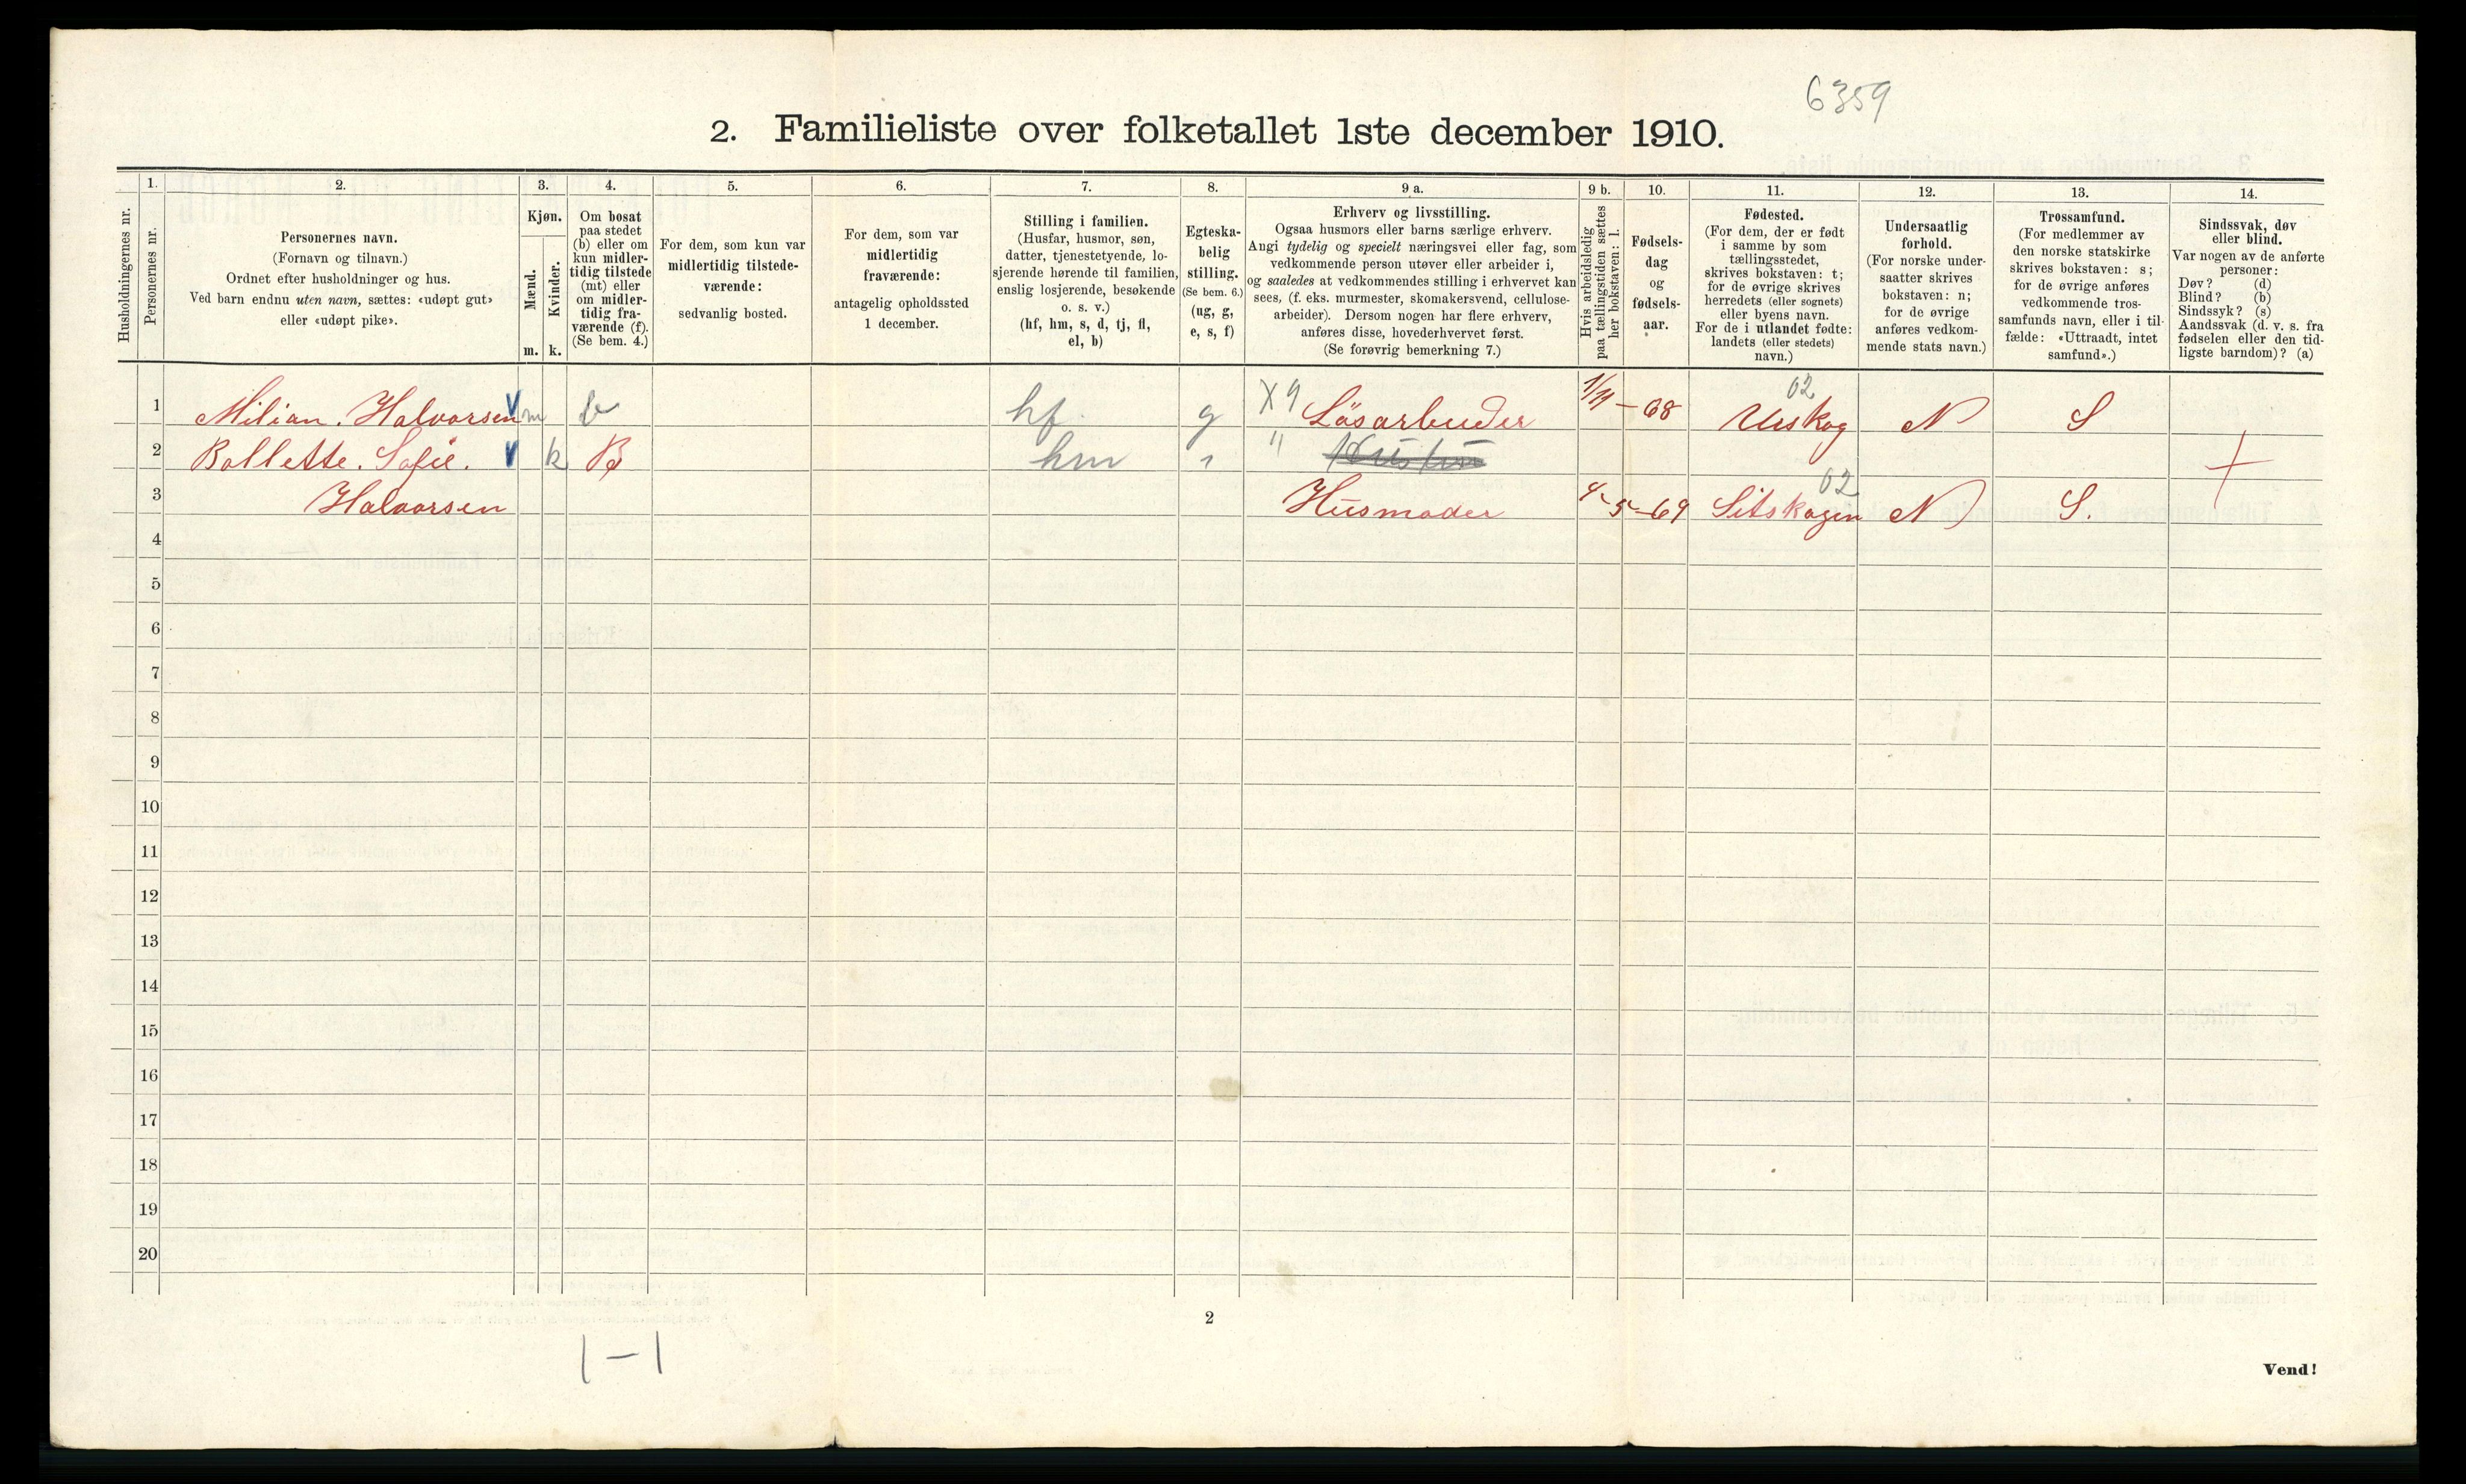 6359
2. Familieliste over folketallet 1ste december 1910.
Husholdningernes nr.
1.
Personernes nr.
2.
Personernes navn.
(Fornavn og tilnavn.)
Ordnet efter husholdninger og hus.
Ved barn endnu uten navn, sættes: «udøpt gut»
eller «udøpt pike».
3.
Kjøn.
Mænd.
Kvinder.
m. k.
4.
Om bosat
paa stedet
(b) eller om
kun midler-
tidig tilstede
(mt) eller
om midler-
tidig fra-
værende (f).
(Se bem. 4.)
5.
For dem, som kun var
midlertidig tilstede-
værende:
sedvanlig bosted.
6.
For dem, som var
midlertidig
fraværende:
antagelig opholdssted
1 december.
7.
Stilling i familien.
(Husfar, husmor, søn,
datter, tjenestetyende, lo-
sjerende hørende til familien,
enslig losjerende, besøkende
o. s. v.)
(hf, hm, s, d, tj, fl,
el, b)
8.
Egteska-
belig
stilling.
(Se bem. 6.)
(ug, g,
e, s, f)
9 a.
Erhverv og livsstilling.
Ogsaa husmors eller barns særlige erhverv.
Angi tydelig og specielt næringsvei eller fag, som
vedkommende person utøver eller arbeider i,
og saaledes at vedkommendes stilling i erhvervet kan
sees, (f. eks. murmester, skomakersvend, cellulose-
arbeider). Dersom nogen har flere erhverv,
anføres disse, hovederhvervet først.
(Se forøvrig bemerkning 7.)
9 b.
Hvis arbeidsledig
paa tællingstiden sættes
her bokstaven: l.
10.
Fødsels-
dag
og
fødsels-
aar.
11.
Fødested.
(For dem, der er født
i samme by som
tællingsstedet,
skrives bokstaven: t;
for de øvrige skrives
herredets (eller sognets)
eller byens navn.
For de i utlandet fødte:
landets (eller stedets)
navn.)
12.
Undersaatlig
forhold.
(For norske under-
saatter skrives
bokstaven: n;
for de øvrige
anføres vedkom-
mende stats navn.)
13.
Trossamfund.
(For medlemmer av
den norske statskirke
skrives bokstaven: s;
for de øvrige anføres
vedkommende tros-
samfunds navn, eller i til-
fælde: «Uttraadt, intet
samfund».)
14.
Sindssvak, døv
eller blind.
Var nogen av de anførte
personer:
Døv? (d)
Blind? (b)
Sindssyk? (s)
Aandssvak (d. v. s. fra
fødselen eller den tid-
ligste barndom)? (a)
1 Milian. Halvorsen V m b hf g X9 Lösarbuder 1/11 - 68 02 Urskog N S
2 Bollette. Sofie. V k B hm " "
3 Halvorsen Husmoder 4-5-69 02 Sitskogen N S.
4
5
6
7
8
9
10
11
12
13
14
15
16
17
18
19
20
2
1-1
Vend!